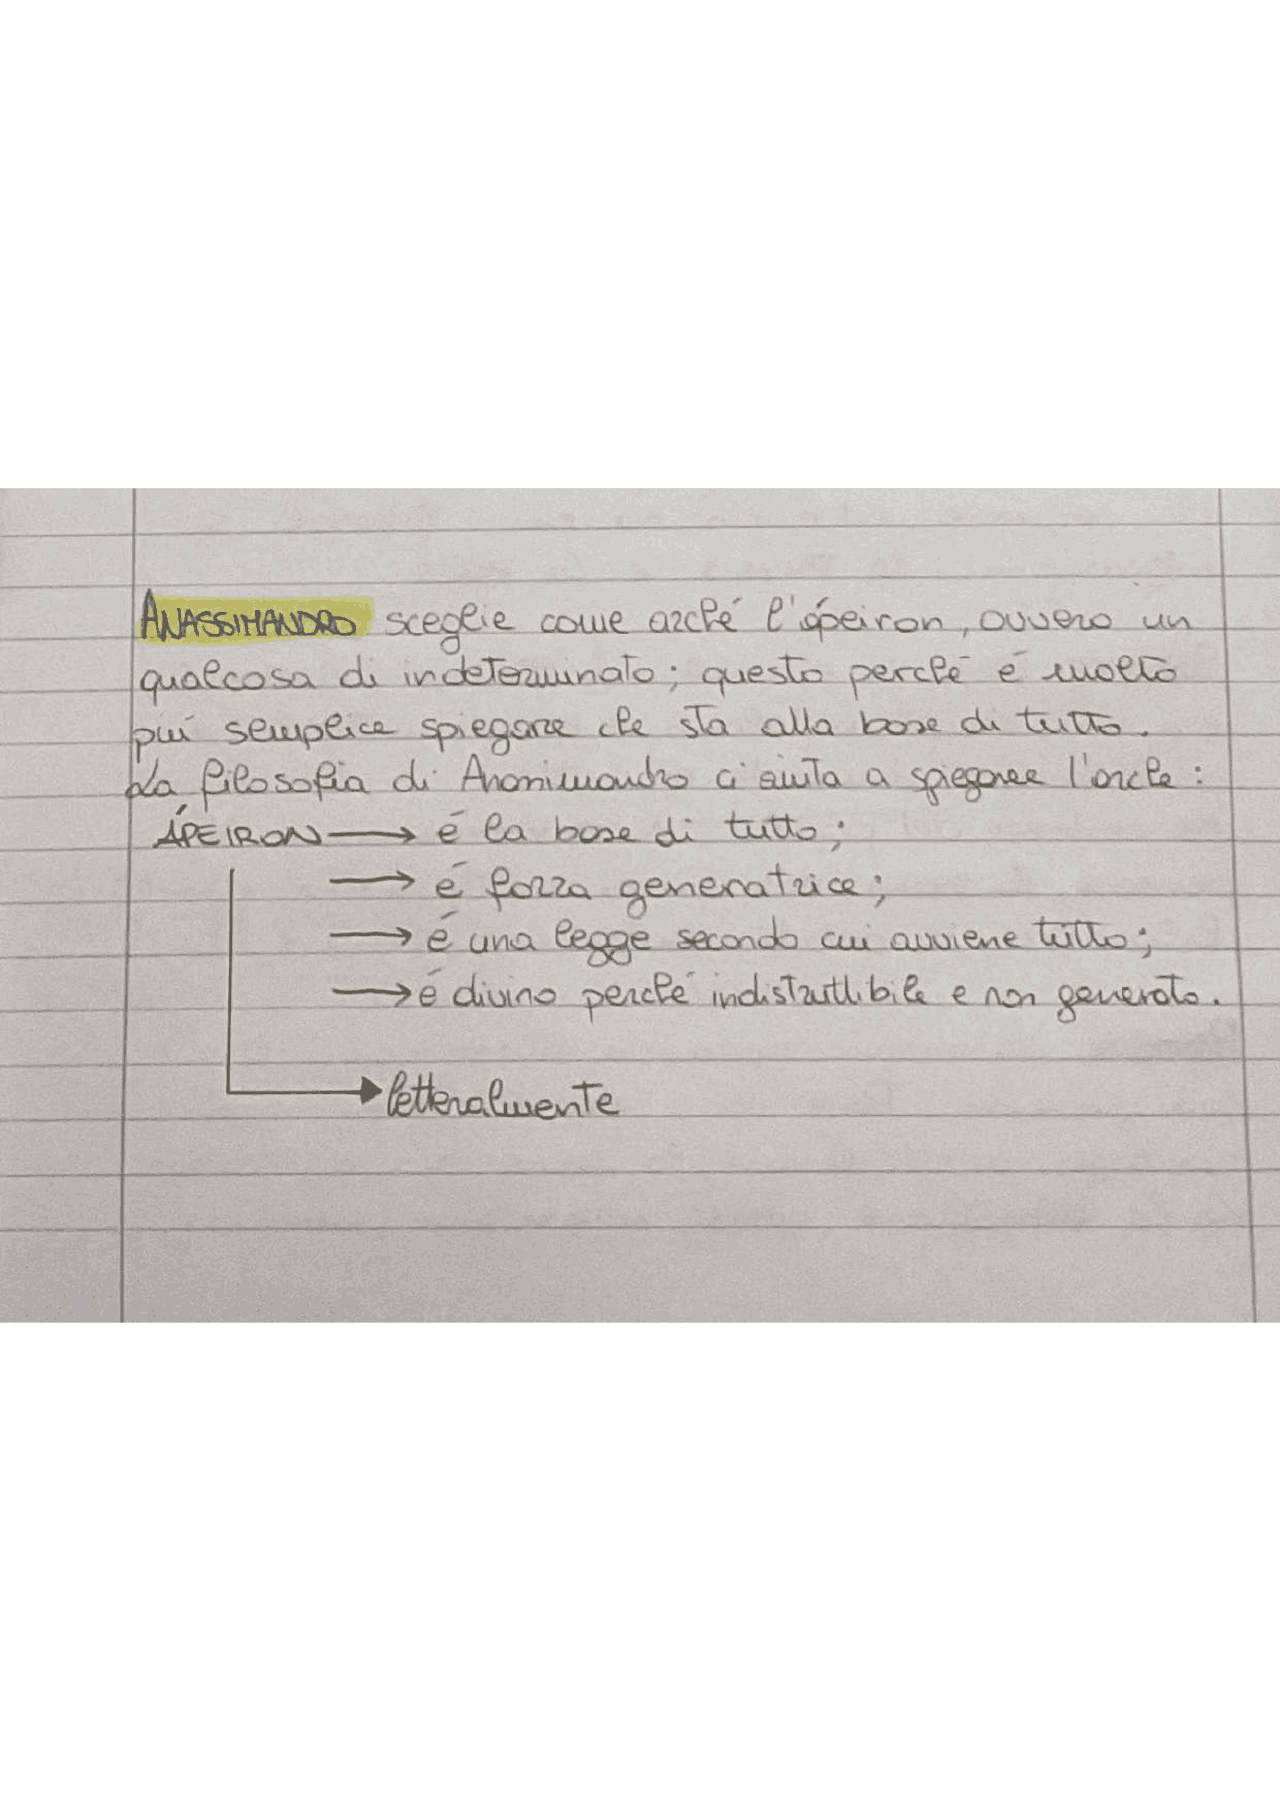 ANASSIMANDRO sceglie come arché l'ápeiron, ovvero un
qualcosa di indeterminato; questo perché é molto
piú semplice spiegare che sta alla base di tutto.
La filosofia di Anassimandro ci aiuta a spiegare l'arche:
ÁPEIRON → é la base di tutto;
→ é forza generatrice;
→ é una legge secondo cui avviene tutto;
→ é divino perché indistruttibile e non generato.
letteralmente